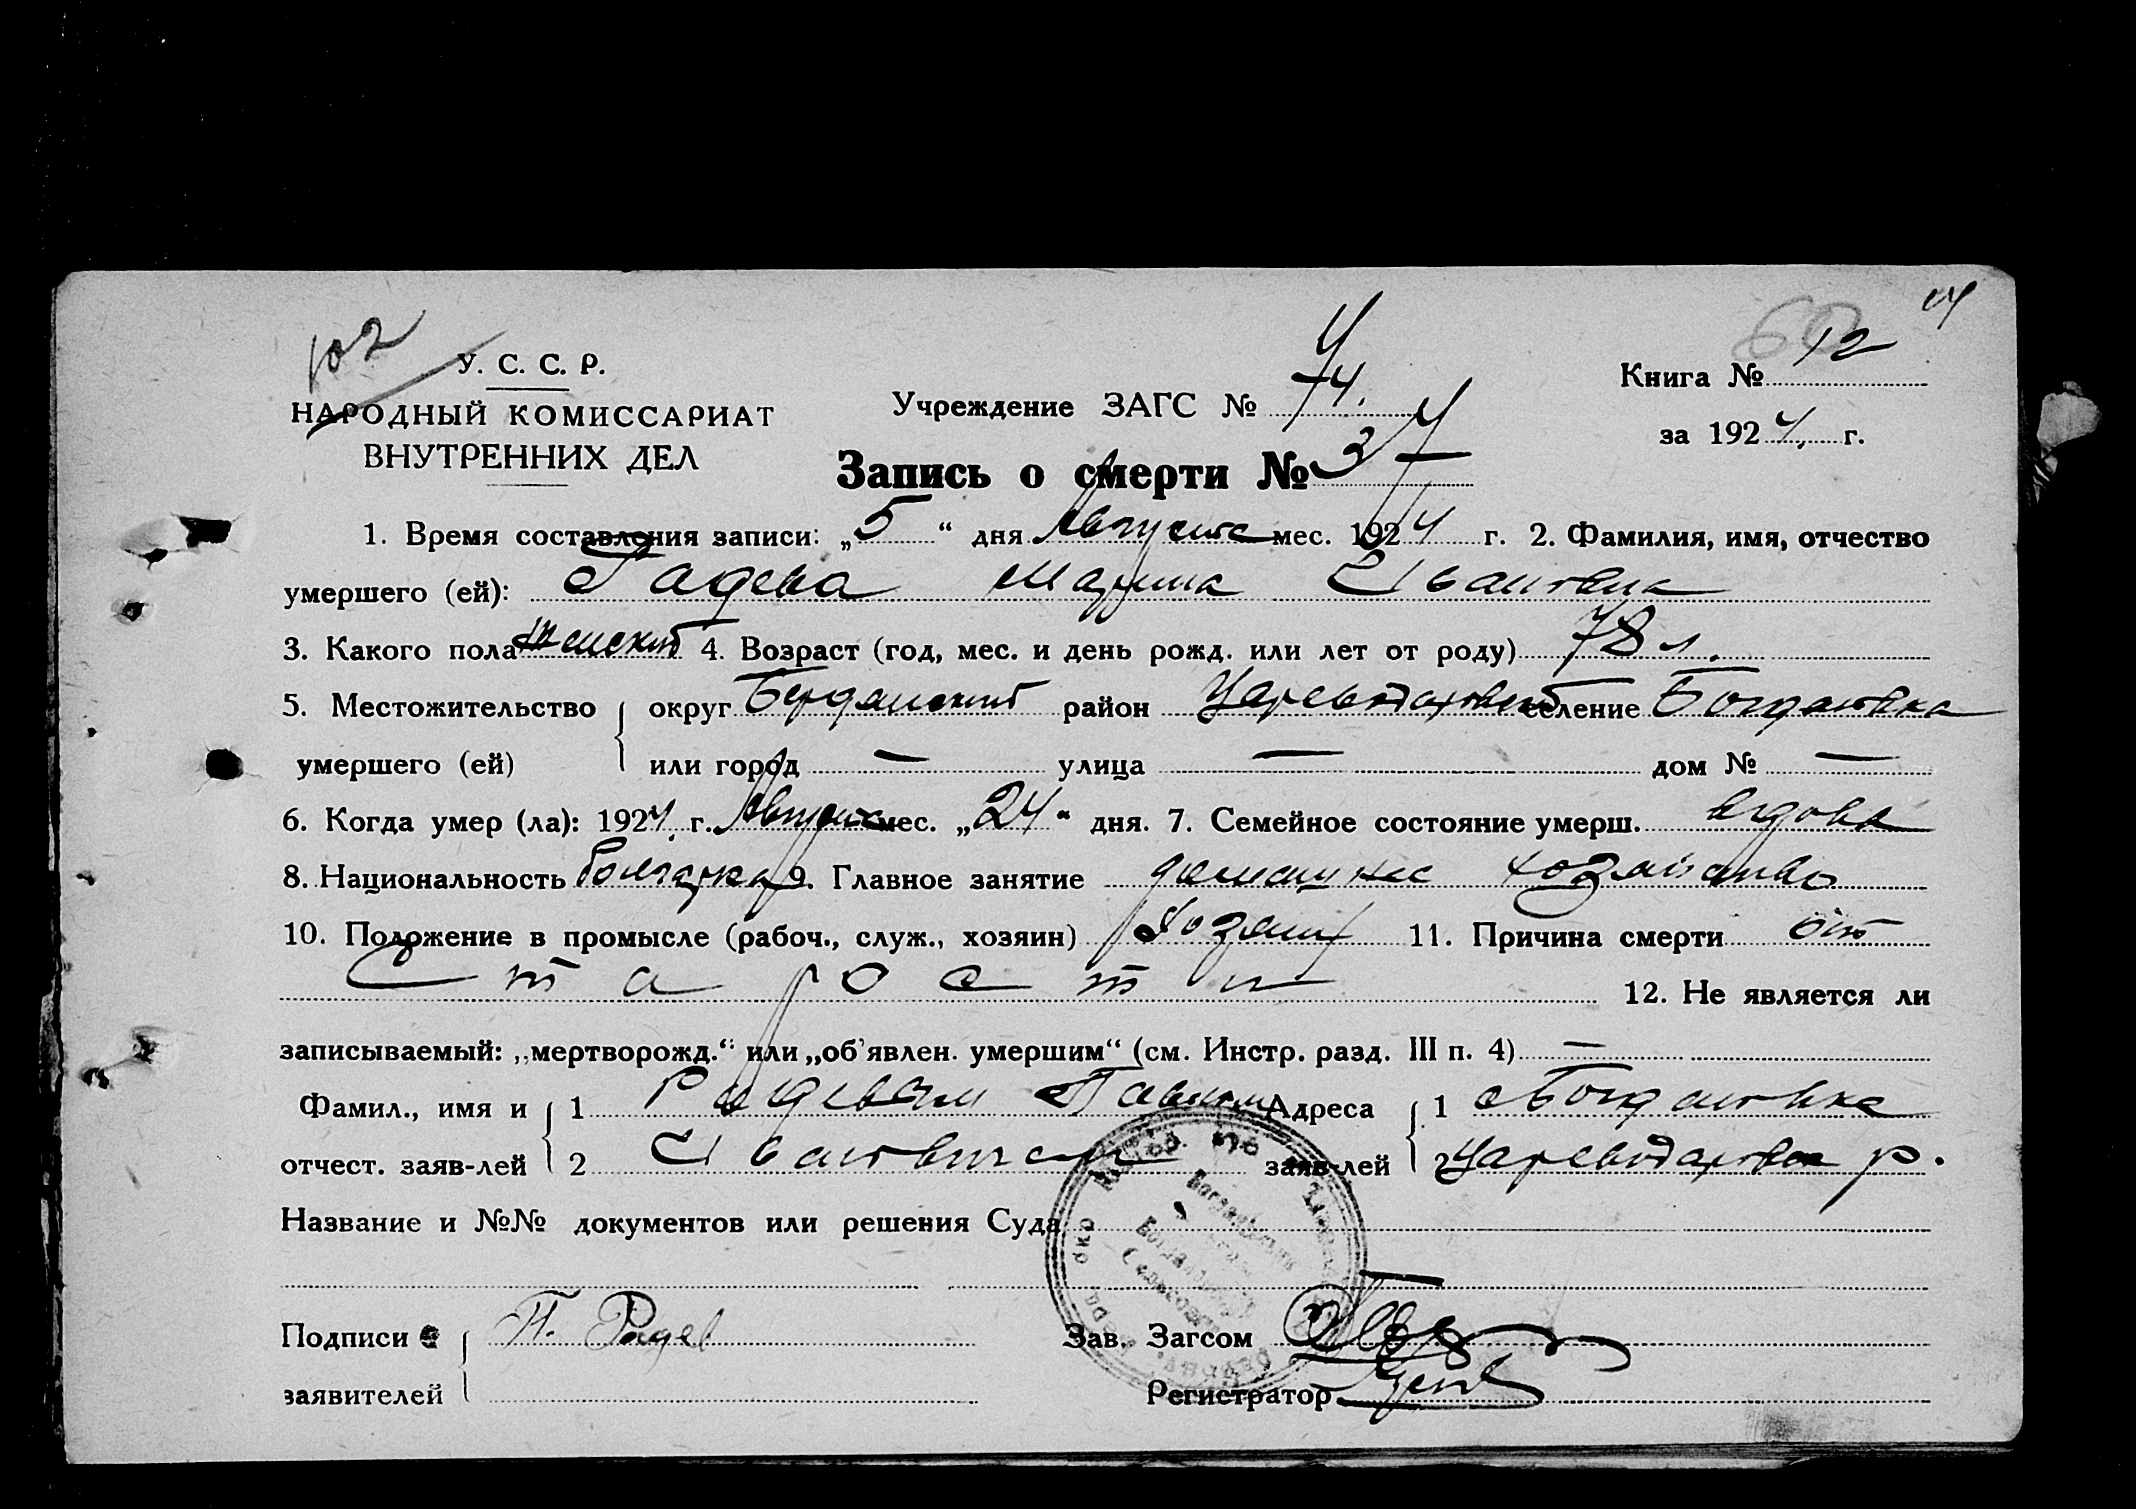 102
У. С. С. Р.
НАРОДНЫЙ КОМИССАРИАТ
ВНУТРЕННИХ ДЕЛ
Учреждение ЗАГС № 74.
60
Книга № 12
за 1924. г.
Запись о смерти № 37
1. Время составления записи: „5“ дня Августа мес. 1924 г. 2. Фамилия, имя, отчество
умершего (ей): Радева Марина Ивановна
3. Какого пола женский 4. Возраст (год, мес. и день рожд. или лет от роду) 78 л.
5. Местожительство округ Бердянский район Цареводаровский селение Богдановка
умершего (ей) или город — улица — дом № —
6. Когда умер (ла): 1924. г. Августа мес. „24“ дня. 7. Семейное состояние умерш. вдова
8. Национальность болгарка 9. Главное занятие домашнее хозяйство
10. Положение в промысле (рабоч., служ., хозяин) 11. Причина смерти от
Старости 12. Не является ли
записываемый: „мертворожд.“ или „об’явлен. умершим“ (см. Инстр. разд. III п. 4) —
Фамил., имя и 1 Радевым Павлом Адреса 1 с Богдановка
отчест. заяв-лей 2 Ивановичем заяв-лей 2 Цареводаровка р.
Название и №№ документов или решения Суда
Подписи П. Радев Зав. Загсом
заявителей Регистратор